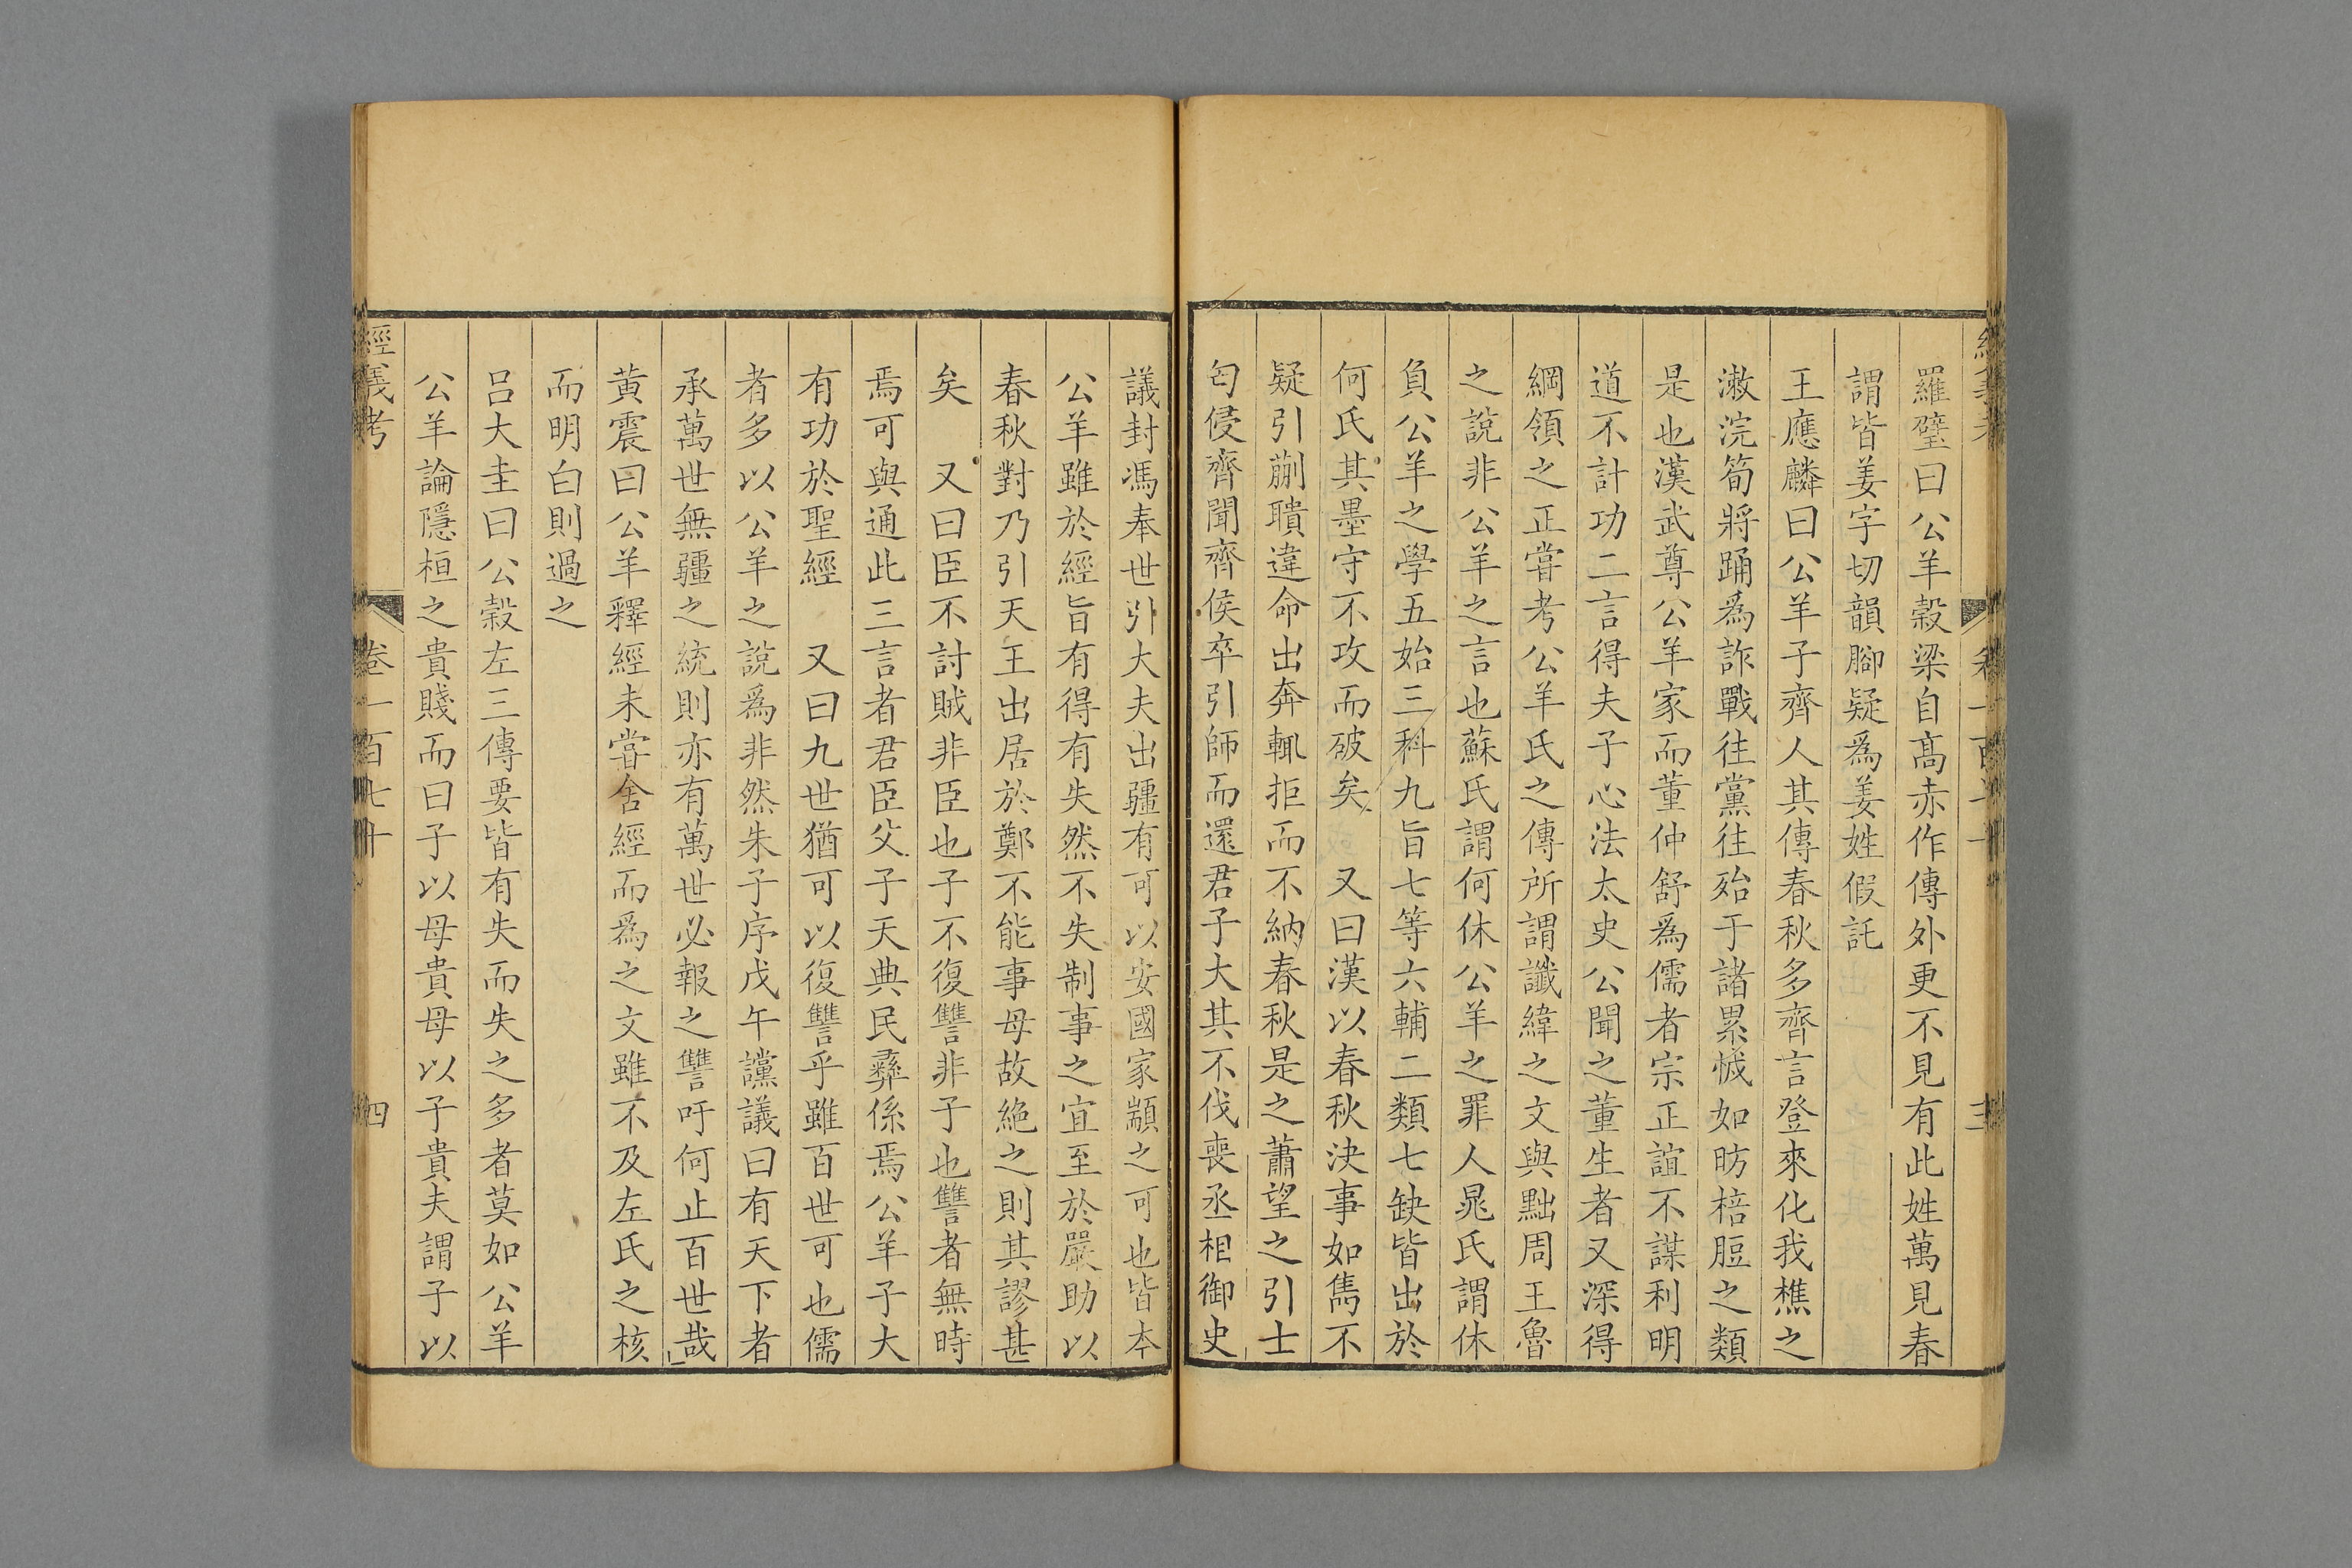 羅璧曰公羊穀梁自高赤作傳外更不見有此姓萬見春
謂皆姜字切韻腳疑爲姜姓假託
王應麟曰公羊子齊人其傳春秋多齊言登來化我樵之
漱浣筍將踊爲詐戰往黨往殆于諸累㤥如昉棓脰之類
是也漢武尊公羊家而董仲舒爲儒者宗正誼不謀利明
道不計功二言得夫子心法太史公聞之董生者又深得
綱領之正嘗考公羊氏之傳所謂讖緯之文與黜周王魯
之說非公羊之言也蘇氏謂何休公羊之罪人晁氏謂休
負公羊之學五始三科九旨七等六輔二類七缺皆出於
何氏其墨守不攻而破矣　又曰漢以春秋決事如雋不
疑引蒯聵違命出奔輒拒而不納春秋是之蕭望之引士
匄侵齊聞齊侯卒引師而還君子大其不伐喪丞相御史
議封馮奉世引大夫出疆有可以安國家顓之可也皆本
公羊雖於經旨有得有失然不失制事之宜至於嚴助以
春秋對乃引天王出居於鄭不能事母故絶之則其謬甚
矣　又曰臣不討賊非臣也子不復讐非子也讐者無時
焉可與通此三言者君臣父子天典民彝係焉公羊子大
有功於聖經　又曰九世猶可以復讐乎雖百世可也儒
者多以公羊之說爲非然朱子序戊午讜議曰有天下者
承萬世無疆之統則亦有萬世必報之讐吁何止百世哉
黃震曰公羊釋經未嘗舍經而爲之文雖不及左氏之核
而明白則過之
呂大圭曰公穀左三傳要皆有失而失之多者莫如公羊
公羊論隱桓之貴賤而曰子以母貴母以子貴夫謂子以
經義考
卷一百七十
四